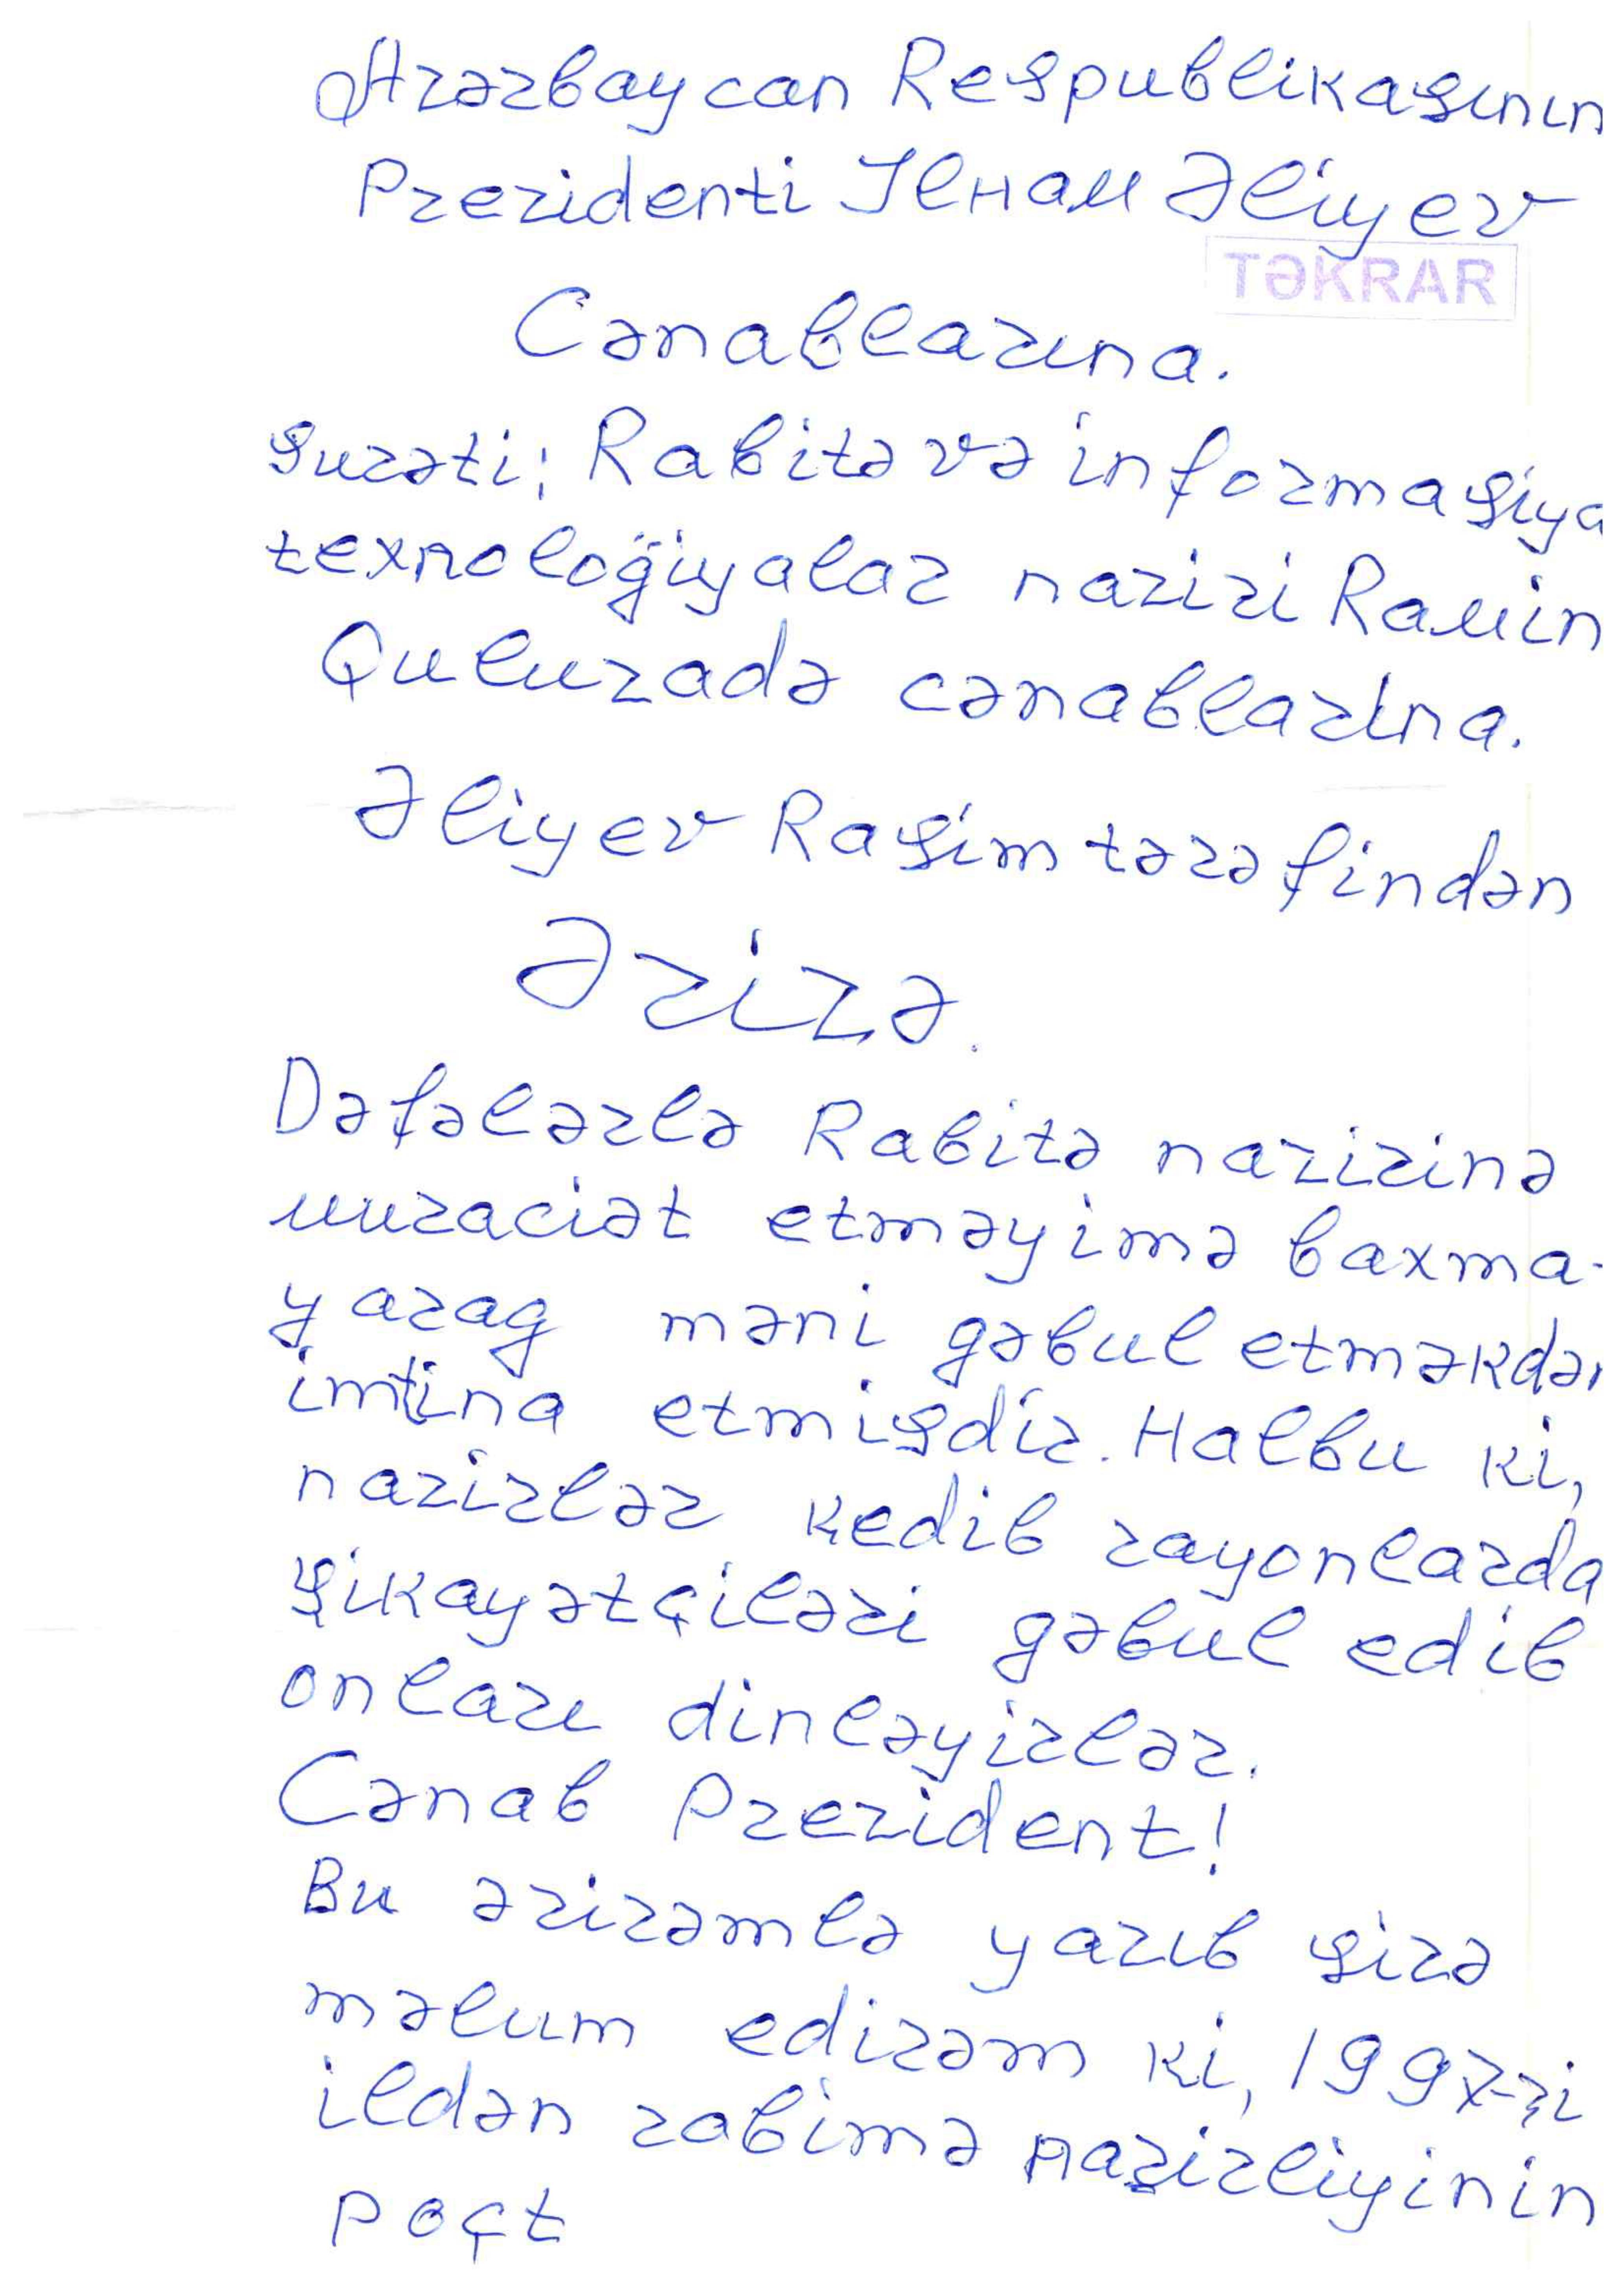 Azərbaycan Respublikasının
Prezidenti Ilham Əliyev
TƏKRAR
Cənablarına.
Surəti; Rabitə və informasiya
texnologiyalar naziri Ramin
Quluzadə cənablarına.
Əliyev Rasim tərəfindən
Ərizə.
Dəfələrlə Rabitə nazirinə
muraciət etməyimə baxma-
yarag məni gəbul etməkdən
imtina etmişdir. Halbu ki,
nazirlər kedib rayonlarda
şikayətçiləri gəbul edib
onları dinləyirlər.
Cənab Prezident!
Bu ərizəmlə yazıb sizə
məlum edirəm ki, 1997-çi
ildən rabimə nazirliyinin
poçt